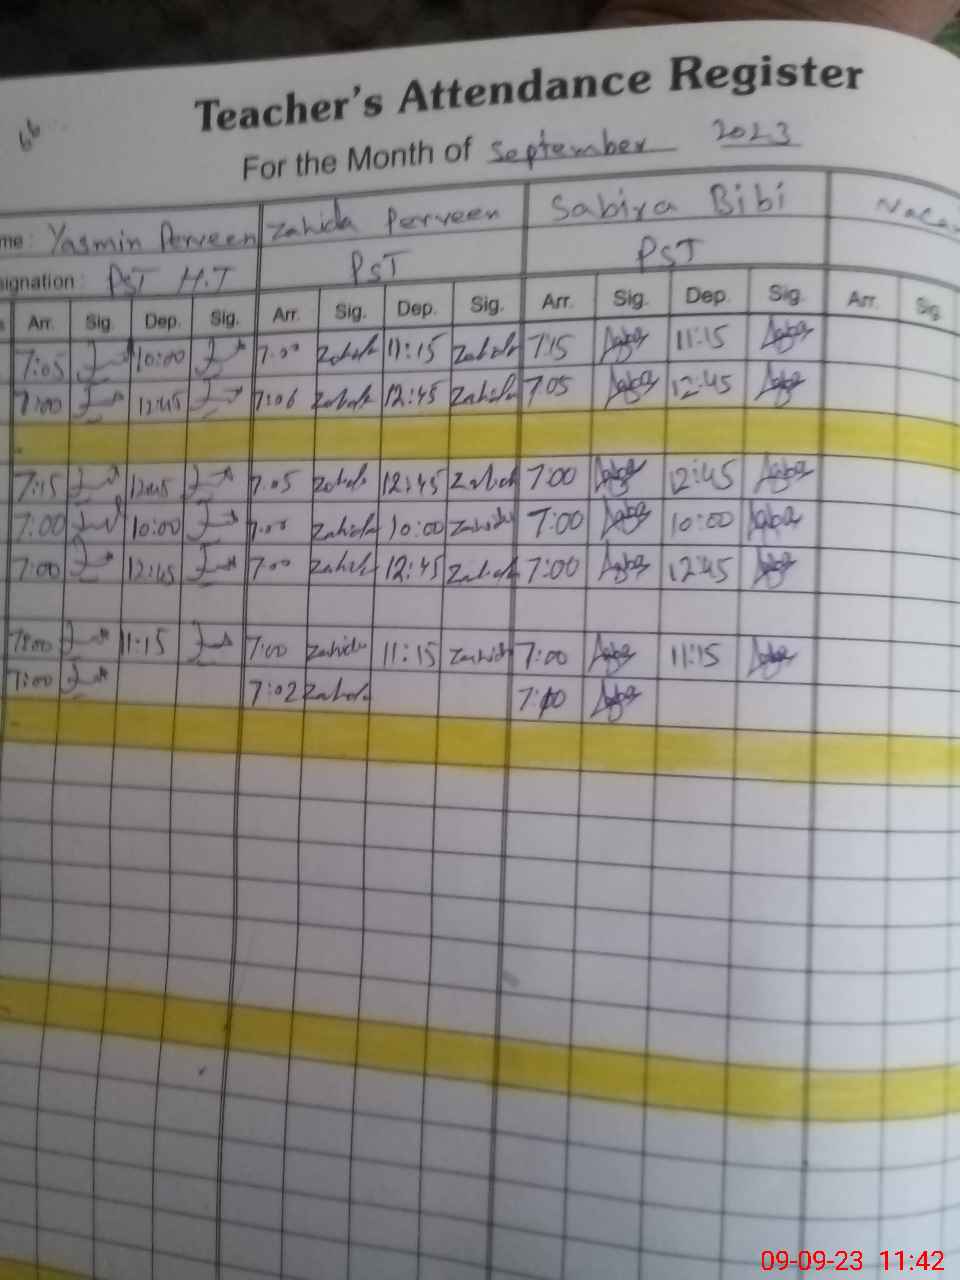 66
Teacher's Attendance Register
For the Month of September 2023
me: Yasmin Perveen Zahida Perveen Sabira Bibi
signation: PST H.T PST PST
Arr. Sig. Dep. Sig. Arr. Sig. Dep. Sig. Arr. Sig. Dep. Sig. Arr. Sig
7:05 10:00 7:00 Zahida 11:15 Zahida 7:15 11:15
7:00 12:45 7:06 Zahida 12:45 Zahida 7:05 12:45
7:15 12:45 7:05 Zahida 12:45 Zahida 7:00 12:45
7:00 10:00 7:00 Zahida 10:00 Zahida 7:00 10:00
7:00 12:45 7:00 Zahida 12:45 Zahida 7:00 12:45
7:00 11:15 7:00 Zahida 11:15 Zahida 7:00 11:15
7:00 7:02 Zahida 7:10
09-09-23 11:42